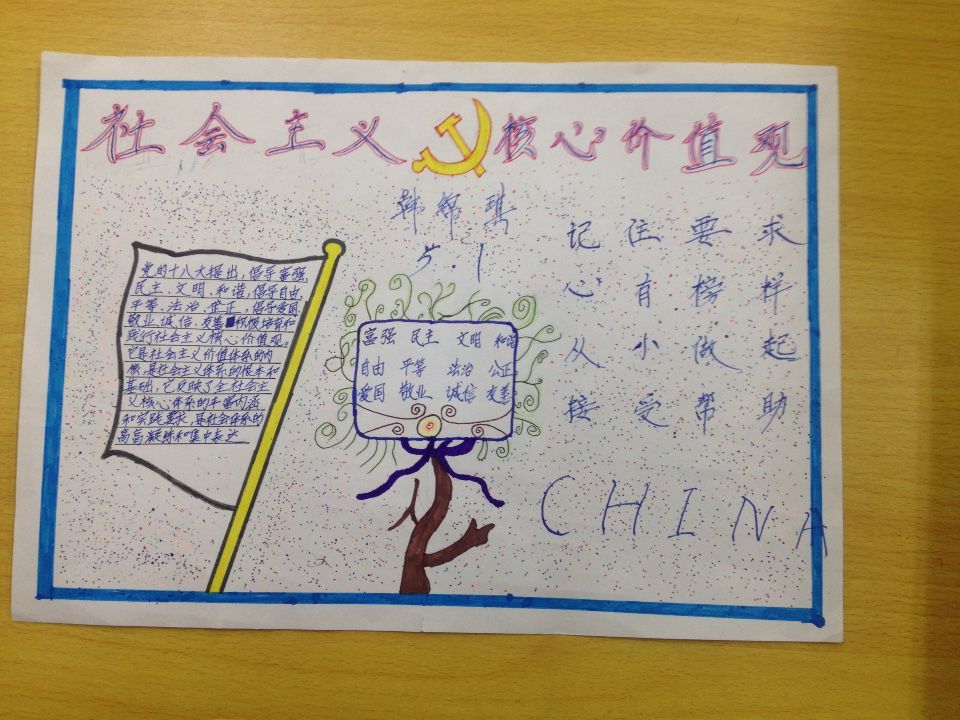 社会主义核心价值观
韩绵琪
5.1
党的十八大提出,倡导富强、
民主、文明、和谐,倡导自由、
平等、法治、公正,倡导爱国、
敬业、诚信、友善,积极培育和
践行社会主义核心价值观。
它是社会主义价值体系的内
核,是社会主义体系的根本和
基础,它反映了全社会主
义核心体系的丰富内涵
和实践要求,是社会体系的
高高凝炼和集中表达
富强 民主 文明 和谐
自由 平等 法治 公正
爱国 敬业 诚信 友善
记住要求
心有榜样
从小做起
接受帮助
CHINA